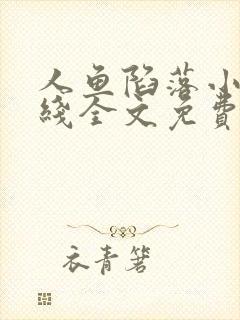 人鱼陷落小
綫全文免費
衣青箬